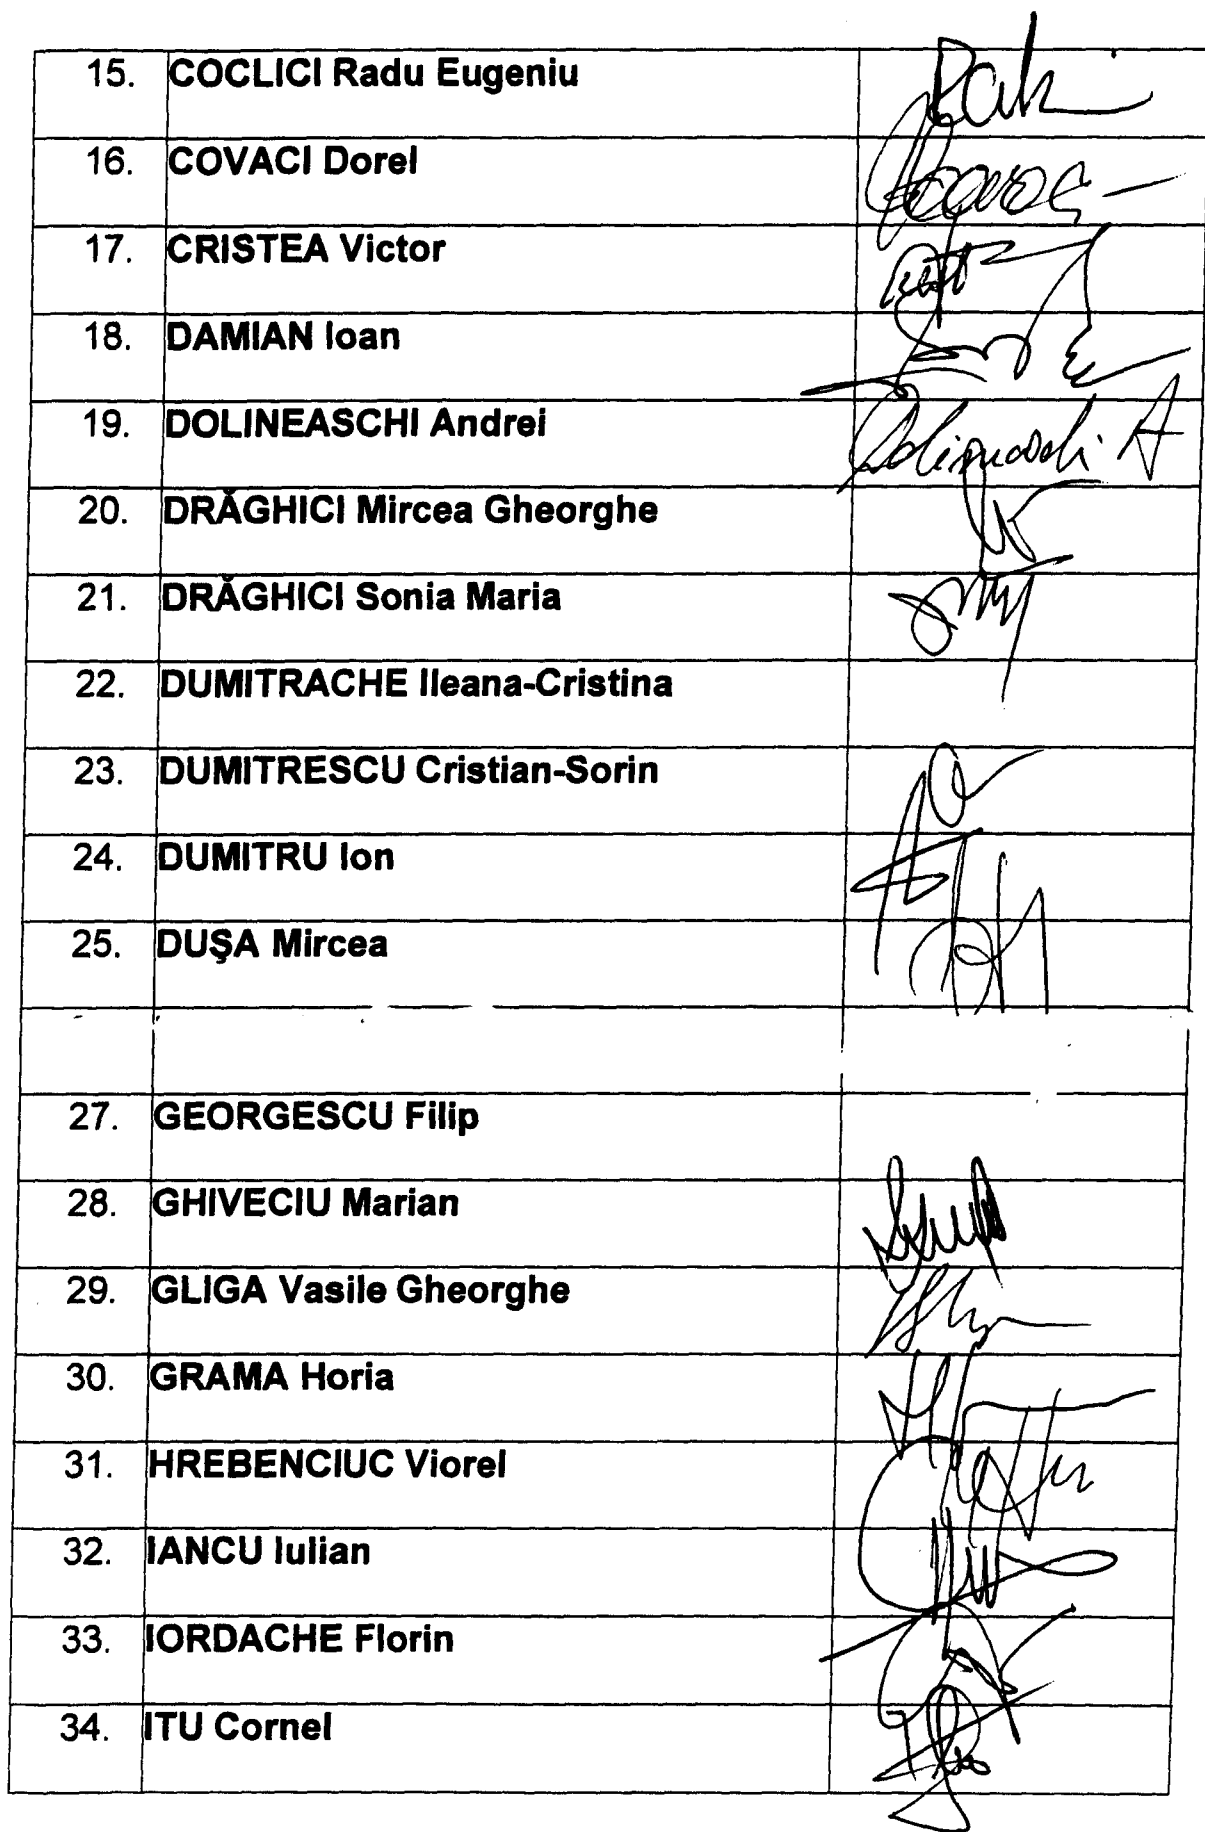 15. COCLICI Radu Eugeniu
16. COVACI Dorel
17. CRISTEA Victor
18. DAMIAN Ioan
19. DOLINEASCHI Andrei
20. DRĂGHICI Mircea Gheorghe
21. DRĂGHICI Sonia Maria
22. DUMITRACHE Ileana-Cristina
23. DUMITRESCU Cristian-Sorin
24. DUMITRU Ion
25. DUŞA Mircea
27. GEORGESCU Filip
28. GHIVECIU Marian
29. GLIGA Vasile Gheorghe
30. GRAMA Horia
31. HREBENCIUC Viorel
32. IANCU Iulian
33. IORDACHE Florin
34. ITU Cornel